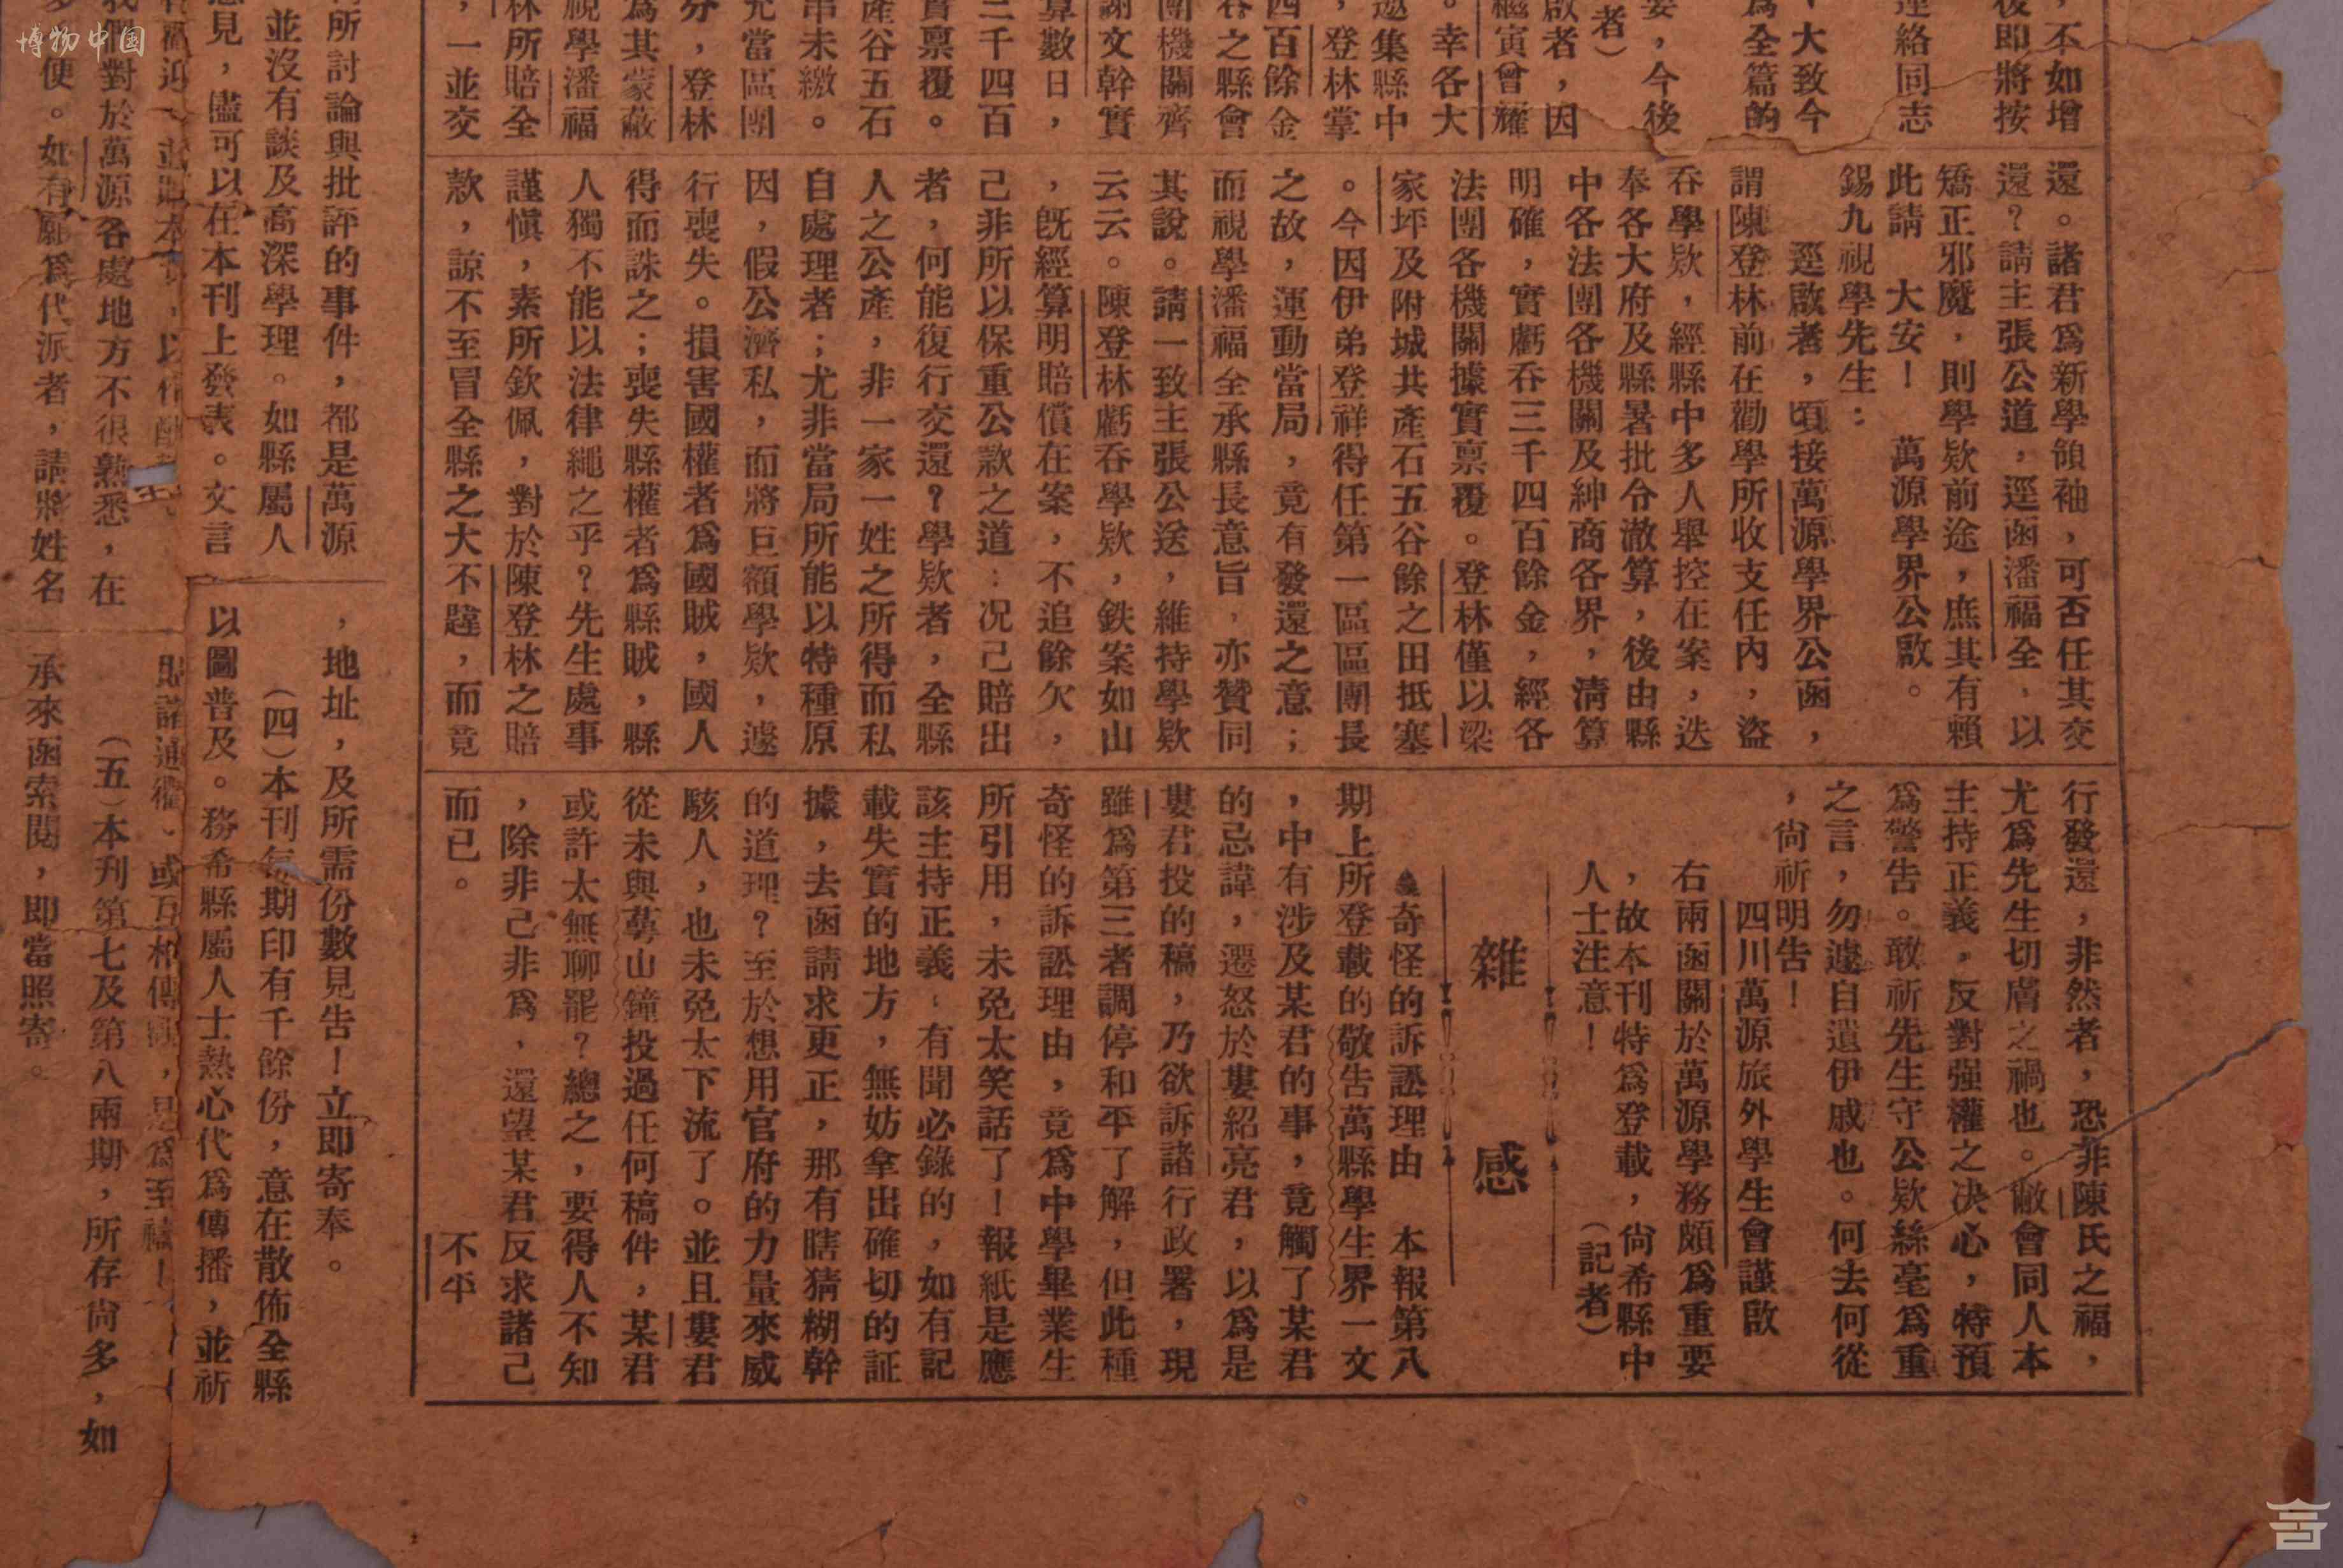 ，不如增
後即將按
連絡同志
、大致今
為全篇的
妥，今後
者）
啟者，因
繼寅曾耀
。幸各大
邀集縣中
，登林掌
四百餘金
吞之縣會
團機關齊
謝文幹實
算數日，
三千四百
實禀覆。
產谷五石
串未繳。
充當區團
分，登林
為其蒙蔽
視學潘福
林所賠全
，一並交
還。諸君爲新學領袖，可否任其交
還？請主張公道，逕函潘福全，以
矯正邪魔，則學欵前途，庶其有賴
此請　大安！　萬源學界公啟。
錫九視學先生：
逕啟者，頃接萬源學界公函，
謂陳登林前在勸學所收支任內，盜
吞學欵，經縣中多人舉控在案，迭
奉各大府及縣署批令澈算，後由縣
中各法團各機關及紳商各界，清算
明確，實虧吞三千四百餘金，經各
法團各機關據實禀覆。登林僅以梁
家坪及附城共產石五谷餘之田抵塞
。今因伊弟登祥得任第一區區團長
之故，運動當局，竟有發還之意；
而視學潘福全承縣長意旨，亦贊同
其說。請一致主張公送，維持學欵
云云。陳登林虧吞學欵，鉄案如山
，旣經算明賠償在案，不追餘欠，
己非所以保重公款之道：况己賠出
者，何能復行交還？學欵者，全縣
人之公產，非一家一姓之所得而私
自處理者；尤非當局所能以特種原
因，假公濟私，而將巨額學欵，遽
行喪失。損害國權者爲國賊，國人
得而誅之；喪失縣權者爲縣賊，縣
人獨不能以法律繩之乎？先生處事
謹愼，素所欽佩，對於陳登林之賠
欵，諒不至冒全縣之大不韙，而竟
行發還，非然者，恐非陳氏之福，
尤爲先生切膚之禍也。敝會同人本
主持正義，反對强權之决心，特預
爲警告。敢祈先生守公欵絲毫爲重
之言，勿遽自遺伊戚也。何去何從
，尙祈明告！
四川萬源旅外學生會謹啟
右兩函關於萬源學務頗爲重要
，故本刊特爲登載，尙希縣中
人士注意！　　　（記者）
雜感
奇怪的訴訟理由　本報第八
期上所登載的敬告萬縣學生界一文
，中有涉及某君的事，竟觸了某君
的忌諱，遷怒於婁紹亮君，以爲是
婁君投的稿，乃欲訴諸行政署，現
雖爲第三者調停和平了解，但此種
奇怪的訴訟理由，竟爲中學畢業生
所引用，未免太笑話了！報紙是應
該主持正義，有聞必錄的，如有記
載失實的地方，無妨拿出確切的証
據，去函請求更正，那有瞎猜糊幹
的道理？至於想用官府的力量來威
駭人，也未免太下流了。並且婁君
從未與萼山鐘投過任何稿件，某君
或許太無聊罷？總之，要得人不知
，除非己非爲，還望某君反求諸己
而已。　　　　　　不平
所討論與批評的事件，都是萬源
並沒有談及高深學理。如縣屬人
意見，儘可以在本刊上發表。文言
對於萬源各處地方不很熟悉，在
便。如有願爲代派者，請將姓名
，地址，及所需份數見告！立即寄奉。
（四）本刊每期印有千餘份，意在散佈全縣
以圖普及。務希縣屬人士熱心代爲傳播，並祈
（五）本刊第七及第八兩期，所存尙多，如
承來函索閱，即當照寄。
博物中国